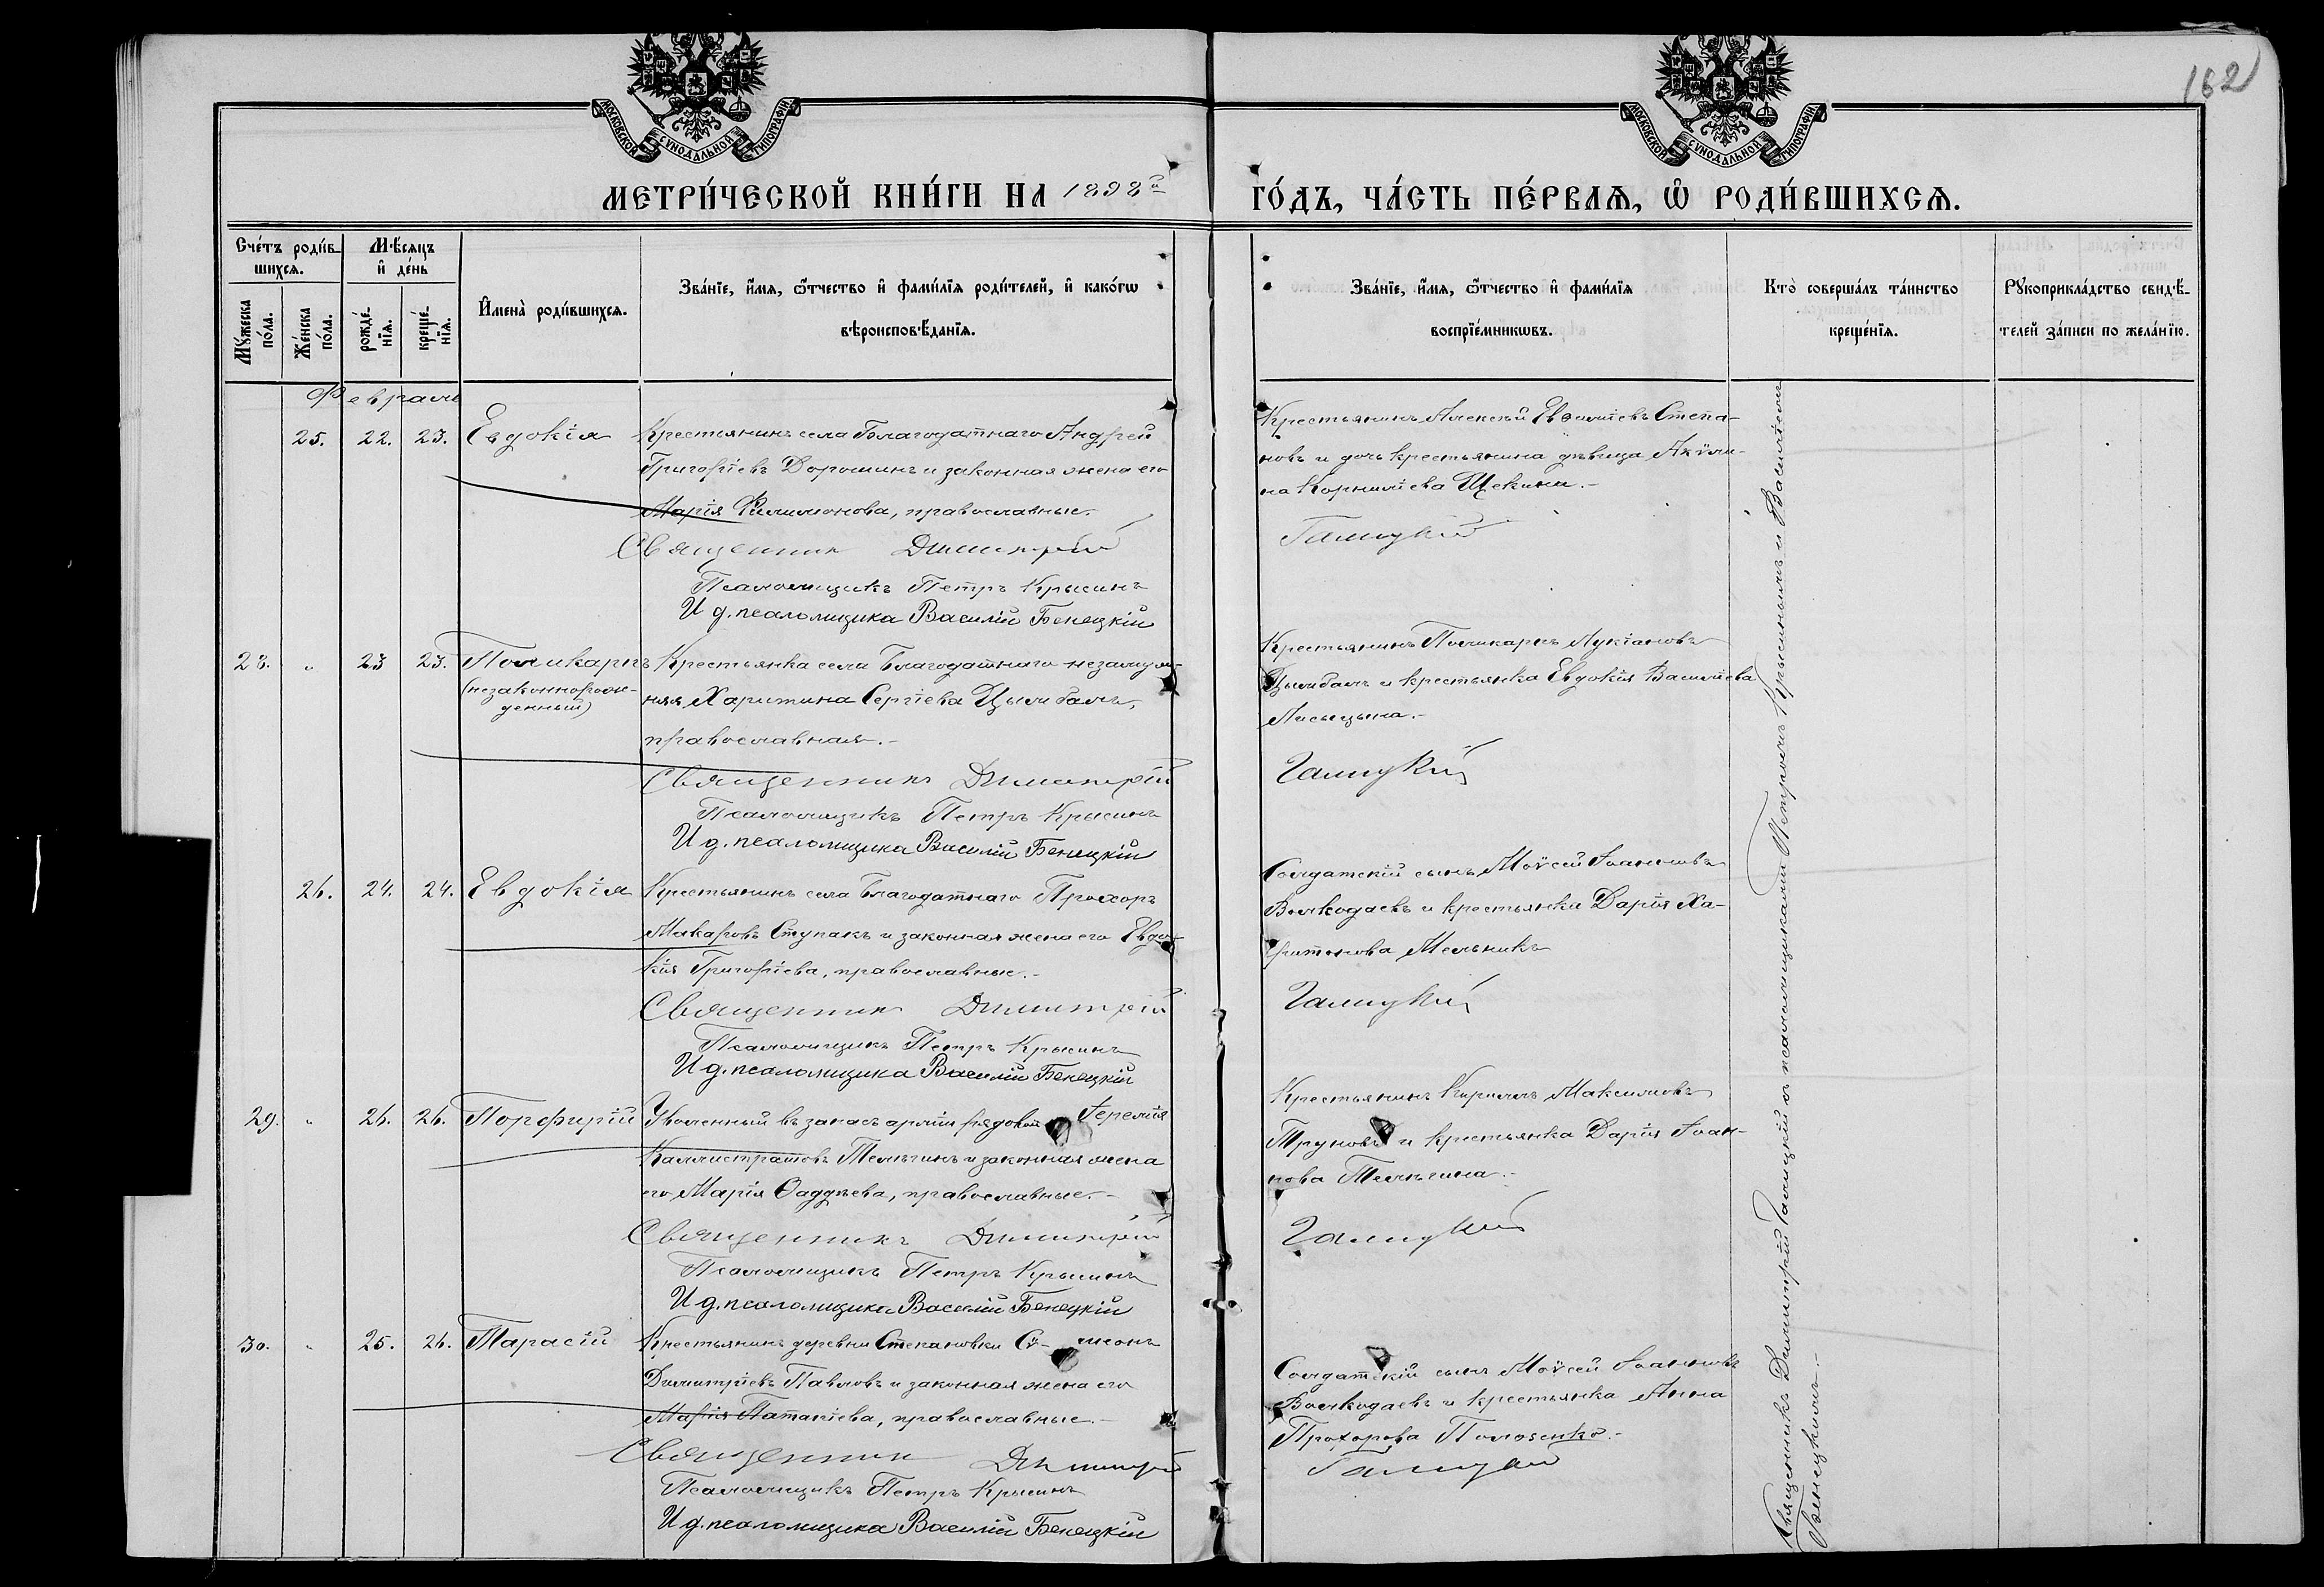 162
МОСКОВСКОЙ СѴНОДАЛЬНОЙ ТИПОГРАФІИ
МОСКОВСКОЙ СѴНОДАЛЬНОЙ ТИПОГРАФІИ
МЕТРИ́ЧЕСКОЙ КНИ́ГИ НА 1898й ГО́ДЪ, ЧА́СТЬ ПЕ́РВАѦ, Ѡ РОДИ́ВШИХСѦ.
Сче́тъ роди́в-
шихсѧ.
Мѣ́сяцъ
и҆ де́нь
Мꙋ́жеска по́ла.
Же́нска по́ла.
рожде́-
нїѧ.
креще́-
нїѧ.
И҆мена̀ роди́вшихсѧ.
Зва́нїе, и҆́мѧ, ѻ҆́тчество и҆ фами́лїѧ роди́телей, и҆ како́гѡ
вѣроисповѣ́данїѧ.
Зва́нїе, и҆́мѧ, ѻ҆́тчество и҆ фами́лїѧ
воспрїе́мникѡвъ.
Кто̀ соверша́лъ та́инство
креще́нїѧ.
Рꙋкоприкла́дство свидѣ́-
телей за́писи по жела́нїю.
Февраль
25. 22. 23. Евдокія Крестьянинъ села Благодатнаго Андрей
Григоріевъ Дорошинъ и законная жена его
Марія Филимонова, православные.
Священникъ Димитрій
Псаломщикъ Петръ Крысинъ
И д. псаломщика Василій Бенецкій
Крестьянинъ Алексѣй Евѳиміевъ Степа-
новъ и дочь крестьянина дѣвица Акили-
на Корниліева Щекина.-
Галицкій
28. " 23 23. Поликарпъ Крестьянка села Благодатнаго незамуж-
(незаконнорож-
денный)
няя Харитина Сергіева Цымбалъ,
православная.-
Священникъ Димитрій
Псаломщикъ Петръ Крысинъ
И д. псаломщика Василій Бенецкій
Крестьянинъ Поликарпъ Лукіановъ
Цымбалъ и крестьянка Евдокія Василіева
Лисицына.-
Галицкій
26. 24. 24. Евдокія Крестьянинъ села Благодатнаго Прохоръ
Макаровъ Ступакъ и законная жена его Евдо-
кія Григоріева, православные.-
Священникъ Димитрій
Псаломщикъ Петръ Крысинъ
И д. псаломщика Василій Бенецкій
Солдатскій сынъ Моѵсей Іоанновъ
Волкодаевъ и крестьянка Дарія Ха-
ритонова Мельникъ
Галицкій
29. " 26. 26. Порфирій Уволенный въ запасъ арміи рядовой Іеремія
Каллистратовъ Тельгинъ и законная жена
его Марія Ѳаддѣева, православные.-
Священникъ Димитрій
Псаломщикъ Петръ Крысинъ
И д. псаломщика Василій Бенецкій
Крестьянинъ Кириллъ Максимовъ
Труновъ и крестьянка Дарія Іоан-
нова Тельгина.-
Галицкій
30. " 25. 26. Тарасій Крестьянинъ деревни Степановки Сѵ-меонъ
Димитріевъ Павловъ и законная жена его
Марія Патапіева, православные.-
Священникъ Димитрій
Псаломщикъ Петръ Крысинъ
И д. псаломщика Василій Бенецкій
Солдатскій сынъ Моѵсей Іоанновъ
Волкодаевъ и крестьянка Анна
Прохорова Полозенко.-
Галицкій
Священникъ Димитрій Галицкій съ псаломщиками Петромъ Крысинымъ и Василіемъ
Бенецкимъ.-